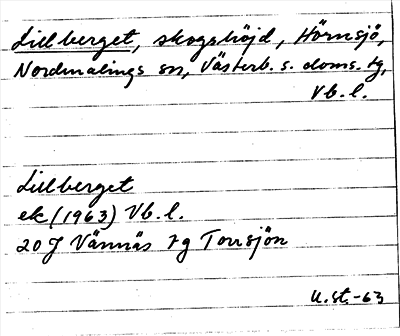 Lillberget, skogshöjd, Hörnsjö,
Nordmalings sn, Västerb. s. doms. tg,
Vb. l.
Lillberget
ek (1963) Vb. l.
20 J Vännäs tg Torrsjön
U. st. -63